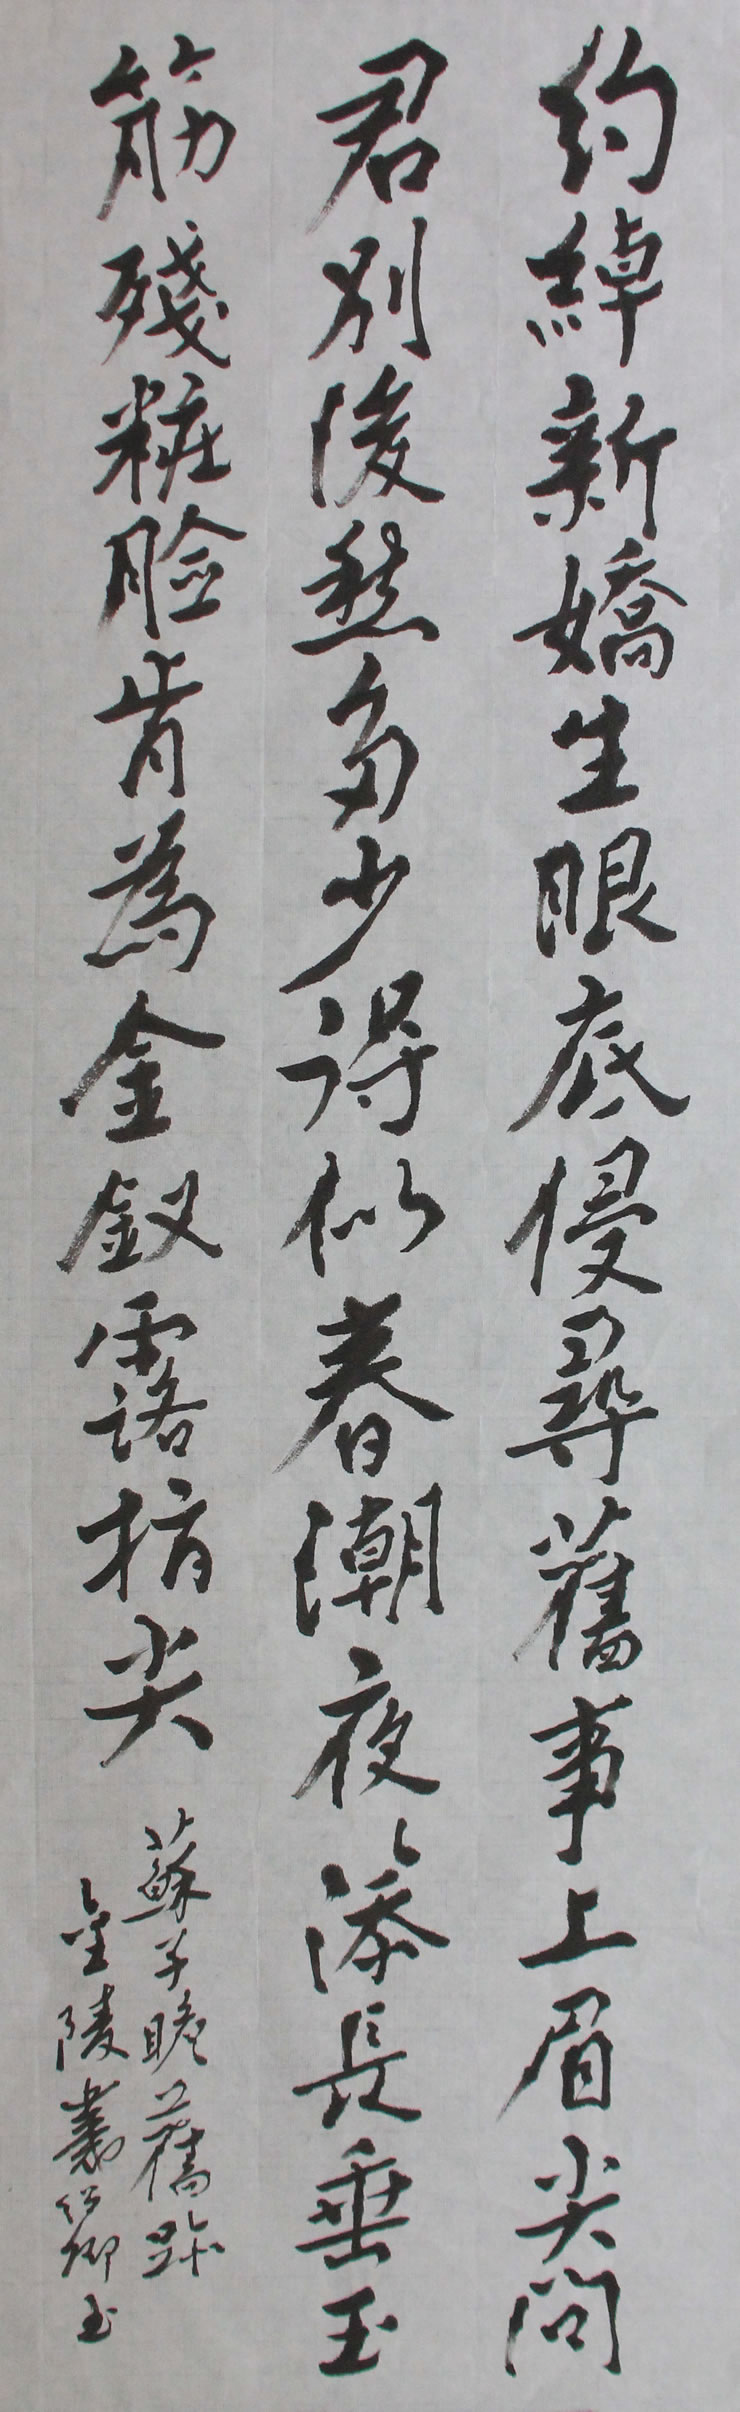 約綽新嬌生眼底侵尋舊事上眉尖問
君別後愁多少得似春潮夜夜添長垂玉
筋殘粧臉肯為金釵露指尖
蘇子瞻舊跡
金陵